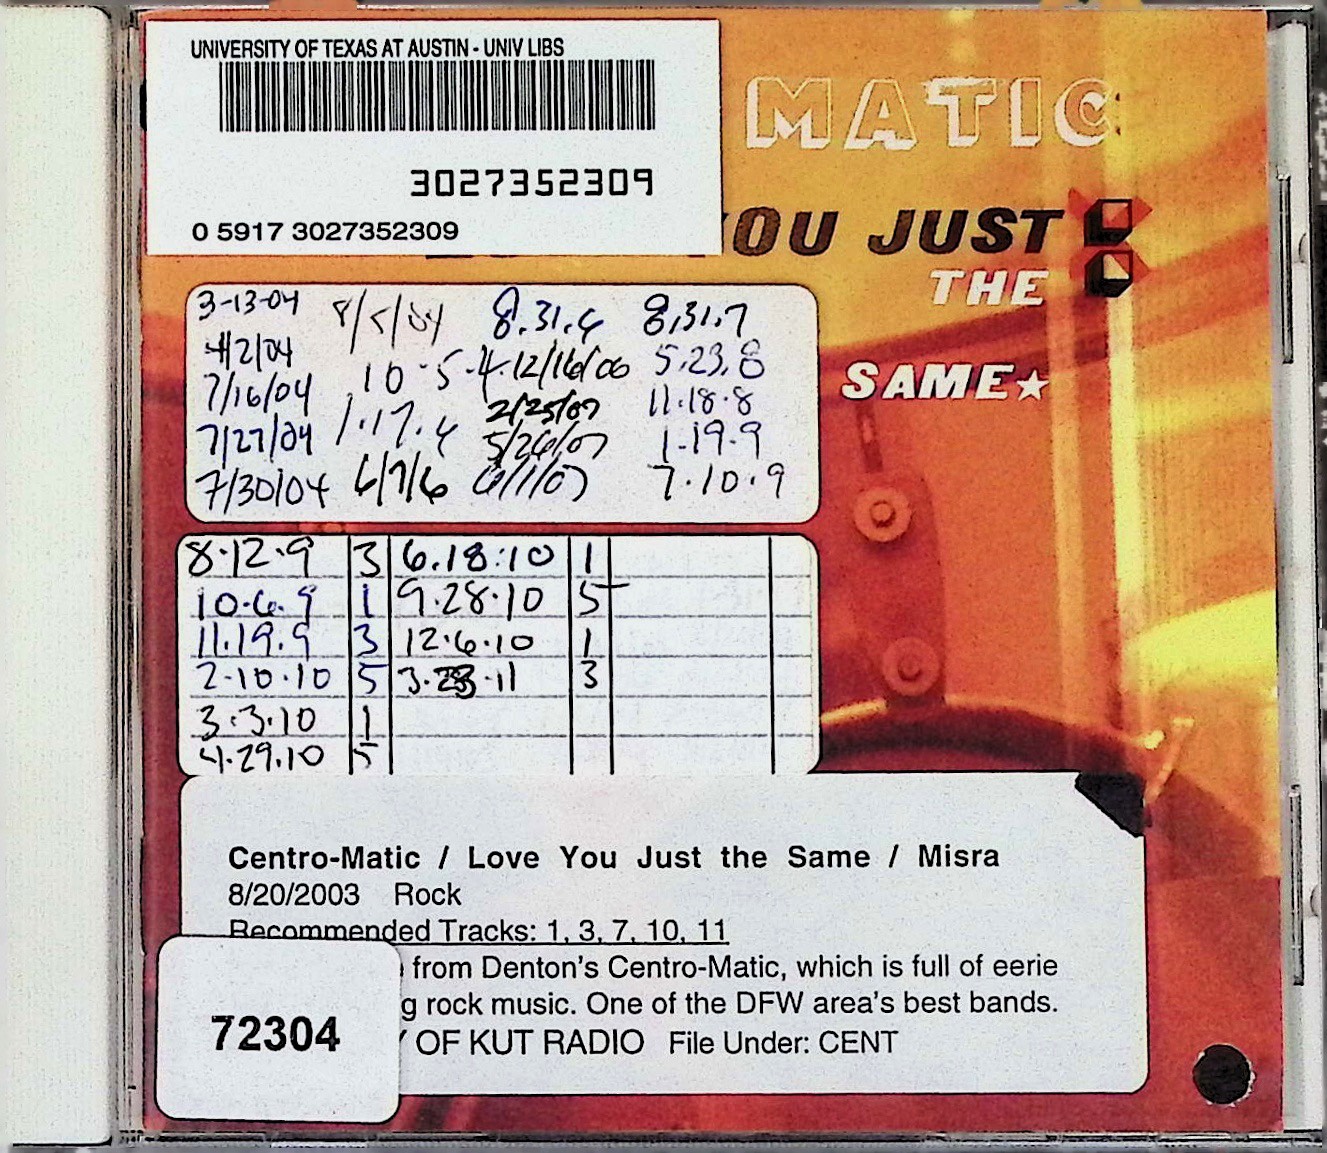 UNIVERSITY OF TEXAS AT AUSTIN - UNIV LIBS
3027352309
0 5917 3027352309
MATIC
YOU JUST
THE
SAME★
3-13-04
4/2/04
7/16/04
7/27/04
7/30/04
8/5/04
10-5-4
1.17.6
6/7/6
8.31.6
12/16/06
2/25/07
5/26/07
6/1/07
8.31.7
5.23.8
11.18.8
1-19-9
7.10.9
8.12.9 3 6.18.10 1
10.6.9 1 9.28.10 5
11.19.9 3 12.6.10 1
2.10.10 5 3.28.11 3
3.3.10 1
4.29.10 5
Centro-Matic / Love You Just the Same / Misra
8/20/2003 Rock
Recommended Tracks: 1, 3, 7, 10, 11
from Denton's Centro-Matic, which is full of eerie
g rock music. One of the DFW area's best bands.
72304
Y OF KUT RADIO File Under: CENT